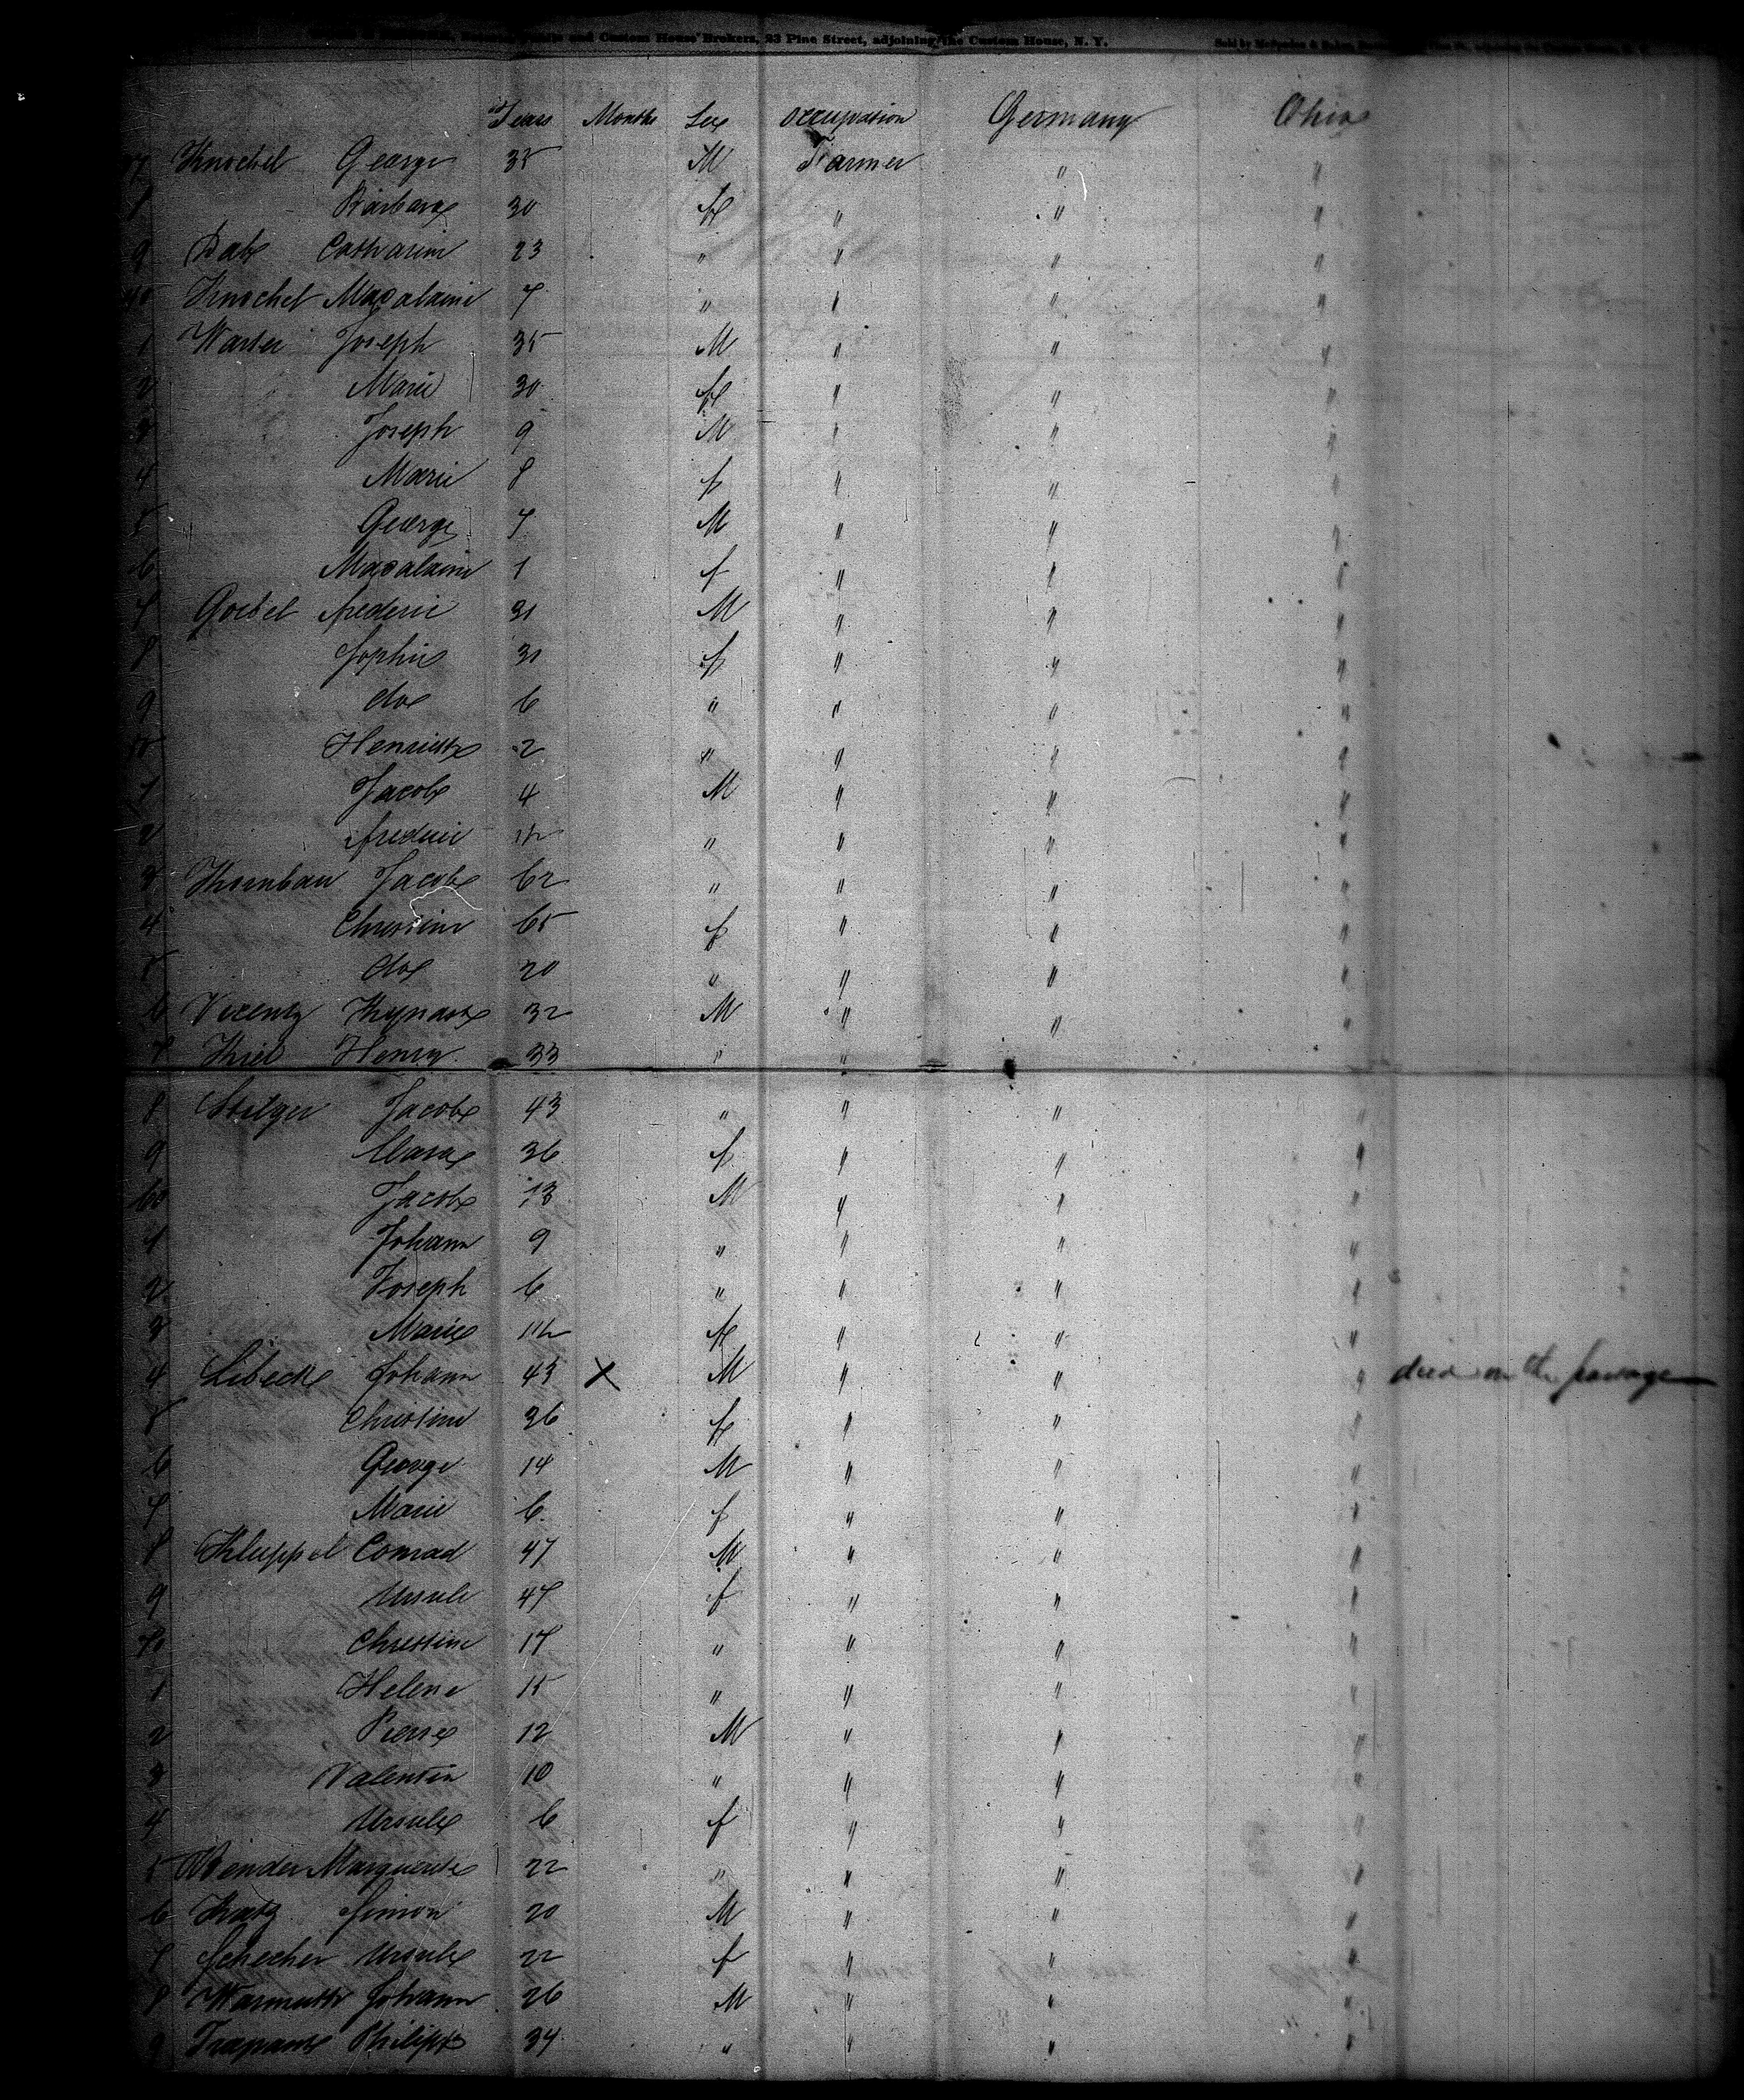 and Custom House Brokers, 23 Pine Street, adjoining the Custom House, N. Y.
Years Months Sex occupation Germany Ohio
37 Knochel George 35 M Farmer " "
8 Barbara 30 f " " "
9 Catharina 23 " " " "
40 Knochel Magalaine 7 " " " "
1 Warter Joseph 35 M " " "
2 Marie 30 f " " "
3 Joseph 9 M " " "
4 Marie 8 f " " "
5 George 7 M " " "
6 Magalaine 1 f " " "
7 Goebel frederic 31 M " " "
8 Sophie 31 f " " "
9 do 6 " " " "
50 Henriette 2 " " " "
1 Jacob 4 M " " "
2 frederic " " " "
3 Jacob 62 " " " "
4 Christine 65 f " " "
5 do 20 " " " "
6 32 M " " "
7 Thiel Henry 33 " "
8 Stilger Jacob 43 " " " "
9 Clara 36 f " " "
60 Jacob 13 M " " "
1 Johann 9 " " " "
2 Joseph 6 " " " "
3 Marie f " " "
4 Libecke Johann 43 X M " " " died on the passage
5 Christine 36 f " " "
6 George 14 M " " "
7 Marie 6 f " " "
8 Kluppel Conrad 47 M " " "
9 Ursule 47 f " " "
70 Christine 17 " " " "
1 Helene 15 " " " "
2 Pierre 12 M " " "
3 Valentin 10 " " " "
4 Ursule 6 f " " "
5 Bender Marguerite 22 " " " "
6 Katz Simon 20 M " " "
7 Schecher Ursule 22 f " " "
8 Warmuth Johann 26 M " " "
9 Philipp 34 " " " "